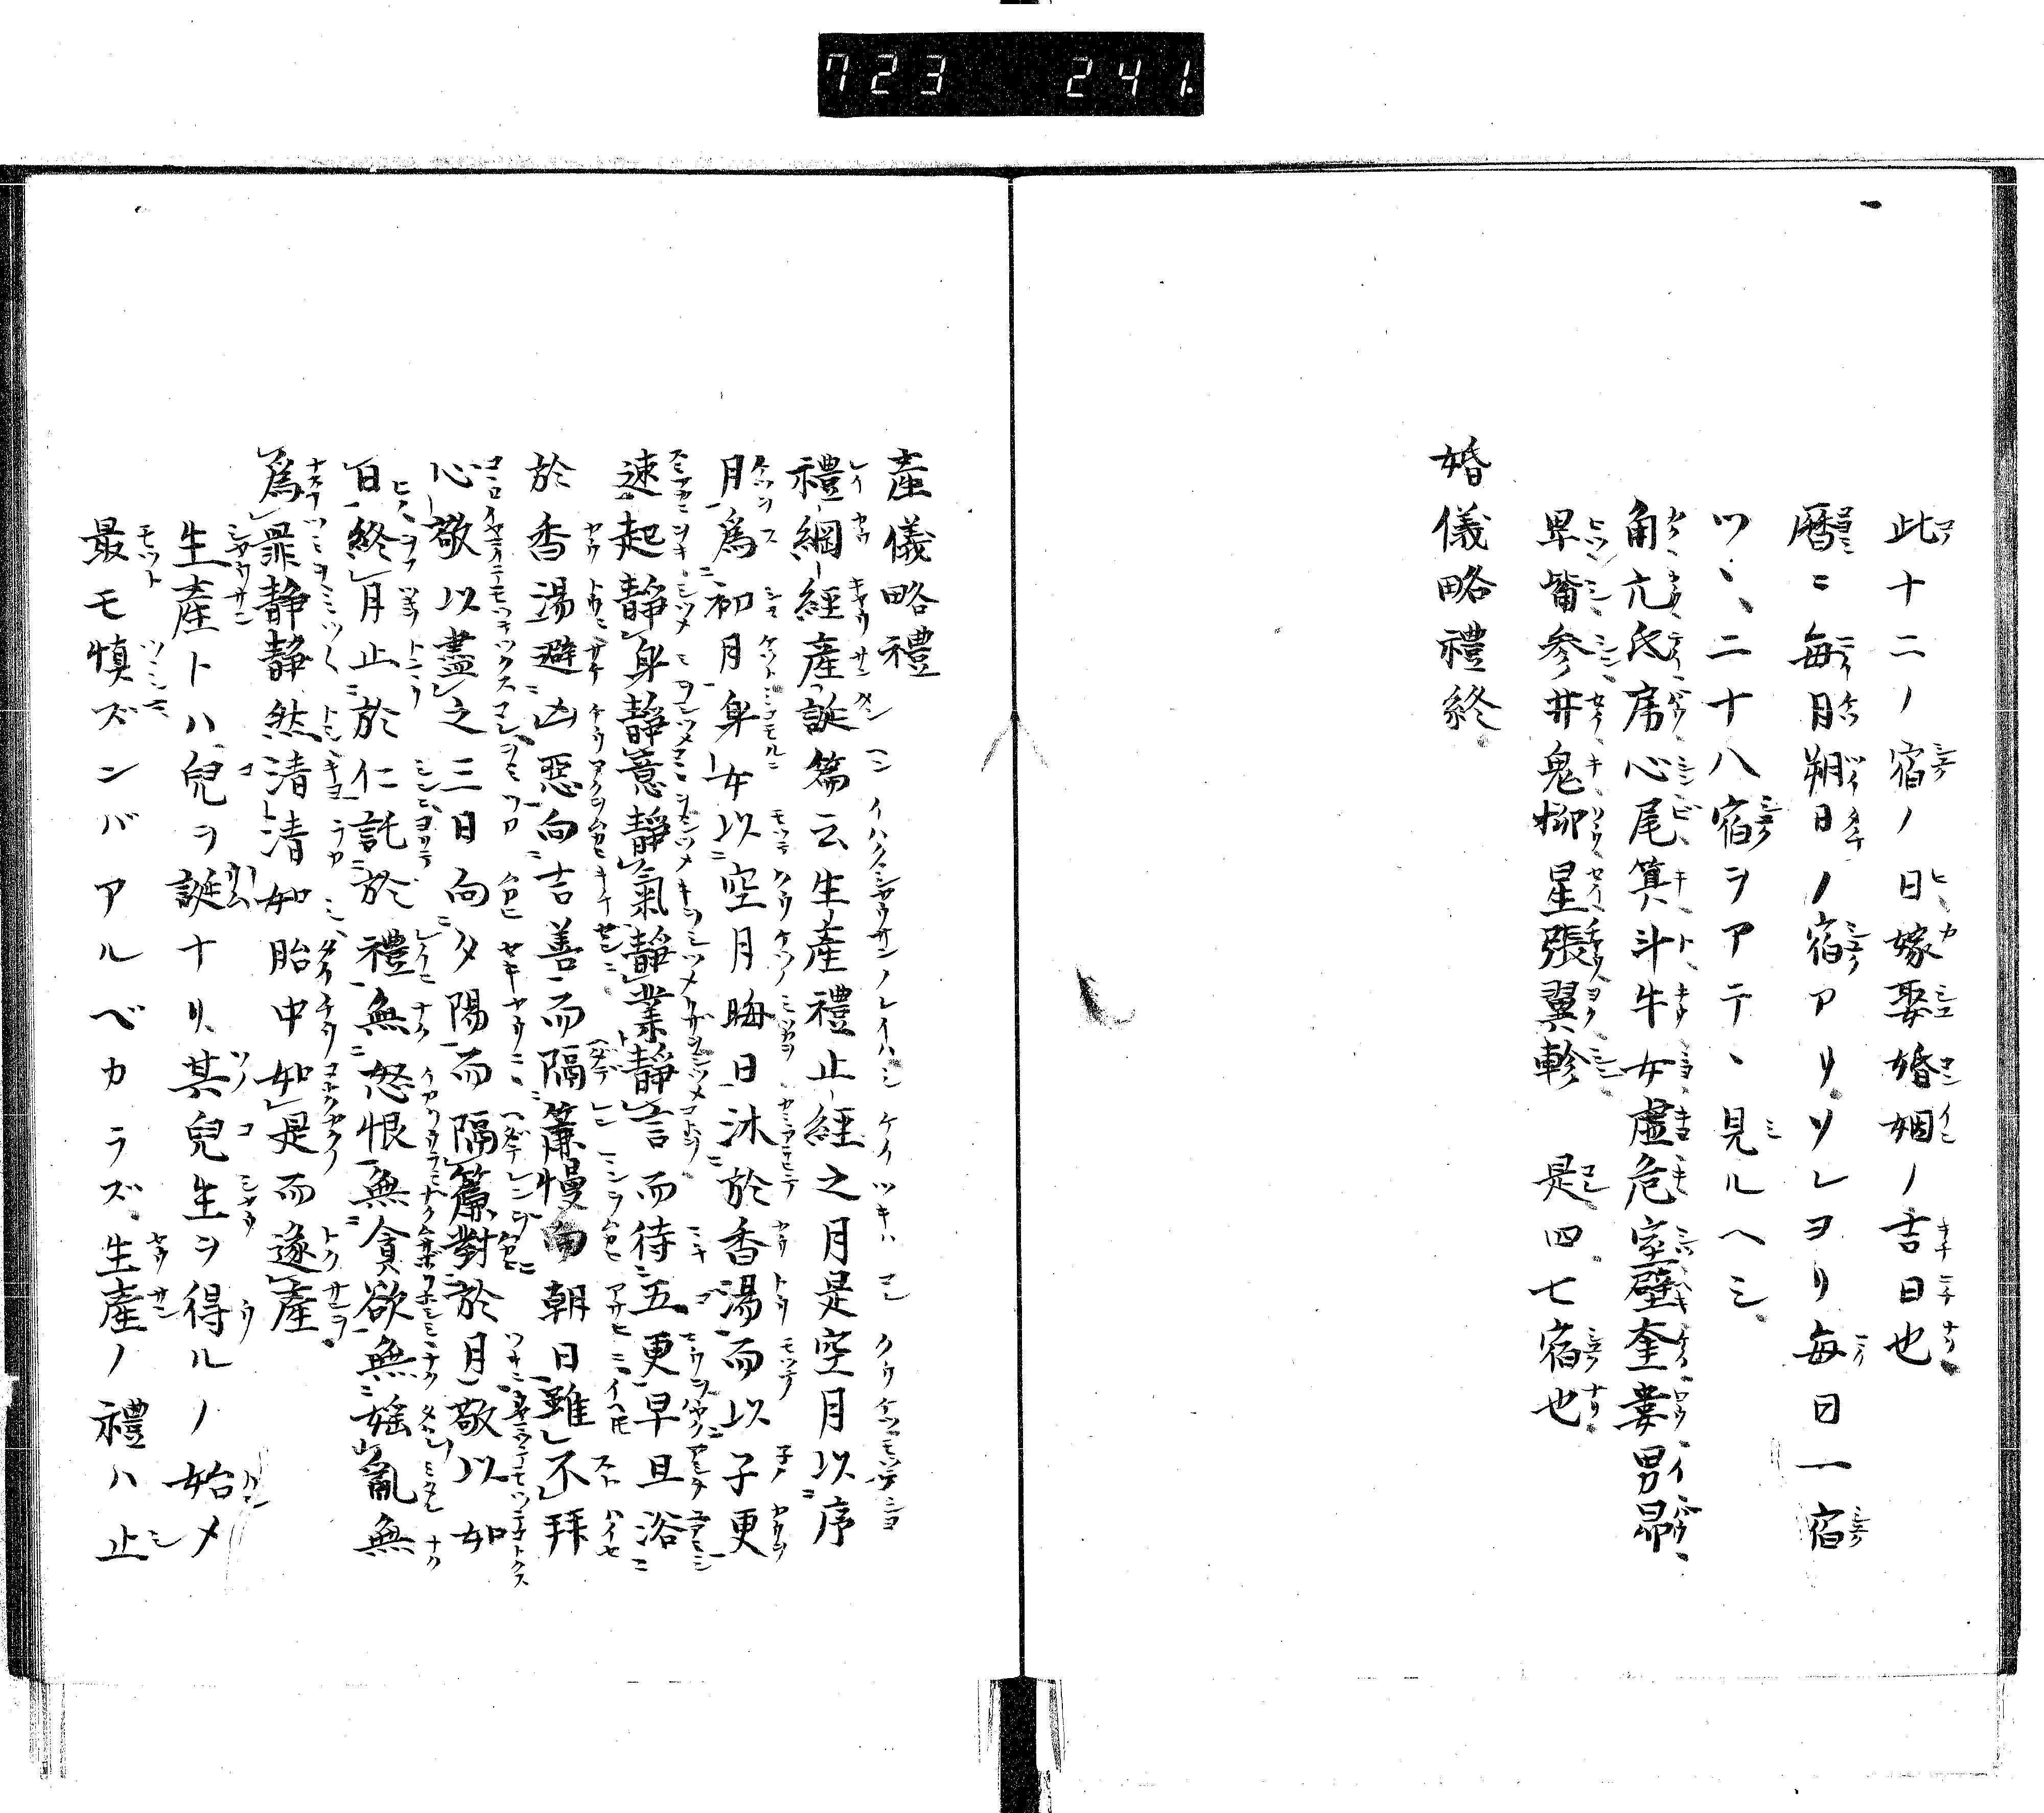 723 241.
此十二ノ宿ノ日嫁娶婚姻ノ吉日也
暦ニ毎月朔日ノ宿アリソレヨリ毎日一宿
ツヽ二十八宿ヲアテヽ見ルヘシ
角亢氐房心尾箕斗牛女虚危室壁奎婁胃昴
畢觜参井鬼柳星張翼軫 是四七宿也
婚儀略禮終
產儀略禮
禮綱經產誕篇云生產禮止經之月是空月以序
月爲初月身女以空月晦日沐於香湯而以子更
速起靜身靜意靜氣靜業靜言而待五更早旦浴
於香湯避凶惡向吉善而隔簾慢向朝日雖不拜
心敬以盡之三日向夕陽而隔簾對於月敬以如
日終月止於仁託於禮無怒恨無貪欲無婬亂無
爲罪靜靜然清清如胎中如是而遂產
生產トハ兒ヲ誕ナリ其兒生ヲ得ルノ始メ
最モ慎ズンバアルベカラズ生產ノ禮ハ止